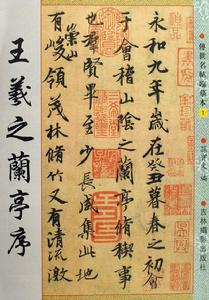 王羲之蘭亭序
永和九年歲在癸丑暮春之初會
于會稽山陰之蘭亭脩稧事
也羣賢畢至少長咸集此地
有崇山峻領茂林脩竹又有清流激
傳世名帖臨摹本
1
吉林攝影出版社